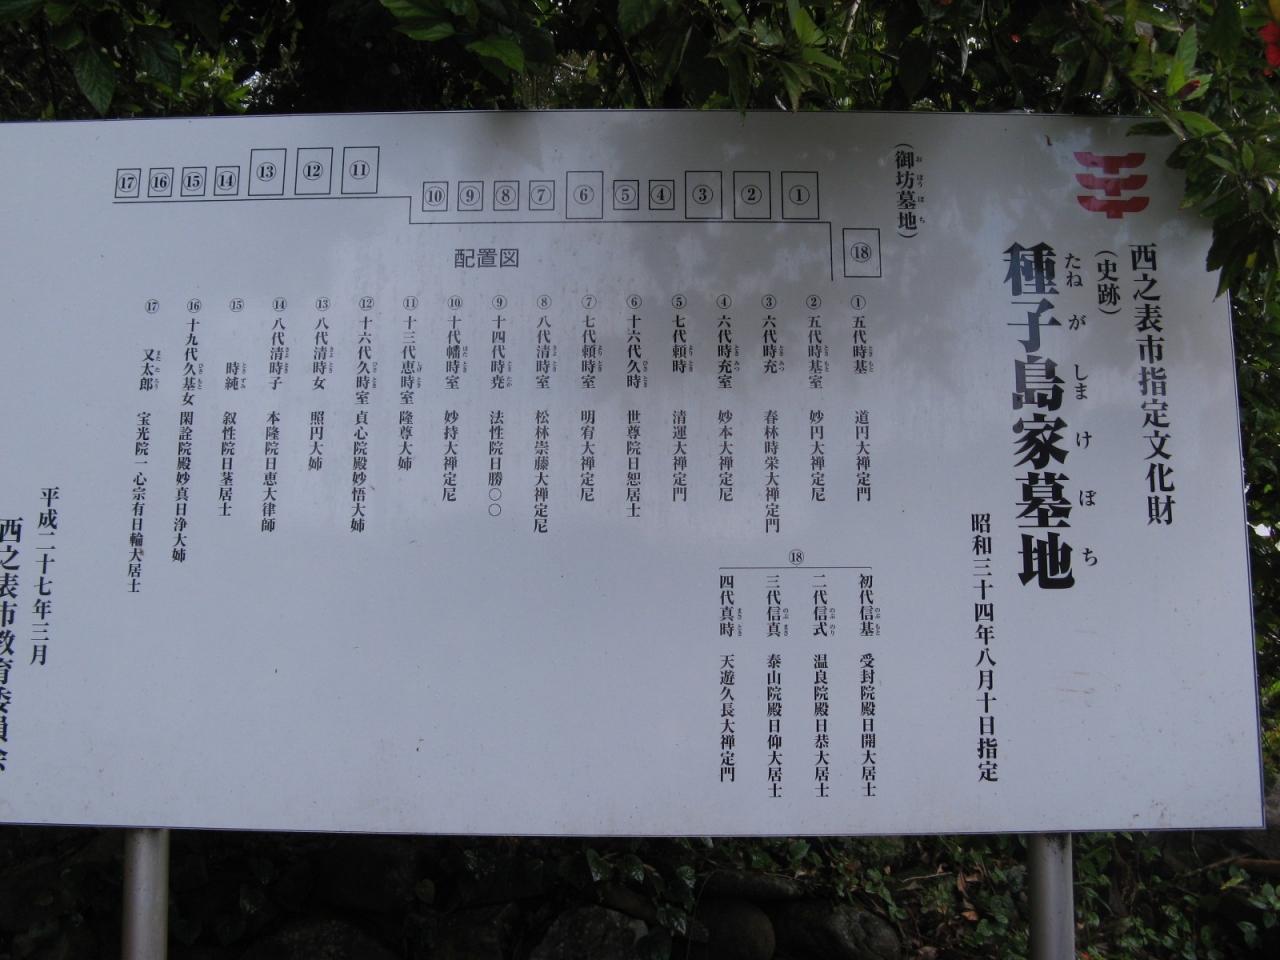 西之表市指定文化財
(史跡)
種子島家墓地
たねがしまけぼち
昭和三十四年八月十日指定
(御坊墓地)
おぼうぼち
① ② ③ ④ ⑤ ⑥ ⑦ ⑧ ⑨ ⑩ ⑪ ⑫ ⑬ ⑭ ⑮ ⑯ ⑰
⑱
配置図
① 五代時基 道円大禅定門
② 五代時基室 妙円大禅定尼
③ 六代時充 春林時栄大禅定門
④ 六代時充室 妙本大禅定尼
⑤ 七代頼時 清運大禅定門
⑥ 十六代久時 世尊院日恕居士
⑦ 七代頼時室 明宥大禅定尼
⑧ 八代清時室 松林崇藤大禅定尼
⑨ 十四代時尭 法性院日勝〇〇
⑩ 十代幡時室 妙持大禅定尼
⑪ 十三代恵時室 隆尊大姉
⑫ 十六代久時室 貞心院殿妙悟大姉
⑬ 八代清時女 照円大姉
⑭ 八代清時子 本隆院日恵大律師
⑮ 時純 叙性院日茎居士
⑯ 十九代久基女 閑詮院殿妙真日浄大姉
⑰ 又太郎 宝光院一心宗有日輪大居士
⑱
初代信基 受封院殿日開大居士
二代信式 温良院殿日恭大居士
三代信真 泰山院殿日仰大居士
四代真時 天遊久長大禅定門
平成二十七年三月
西之表市教育委員会